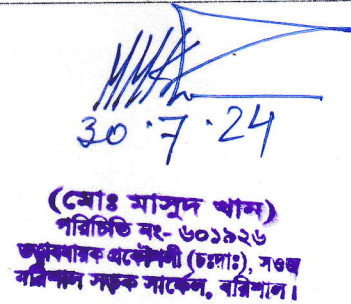 30.7.24
(মোঃ মাসুদ খান)
পরিচিতি নং- ৬০১৯২৬
তত্ত্বাবধায়ক প্রকৌশলী (চঃদাঃ), সওজ
বরিশাল সড়ক সার্কেল, বরিশাল।